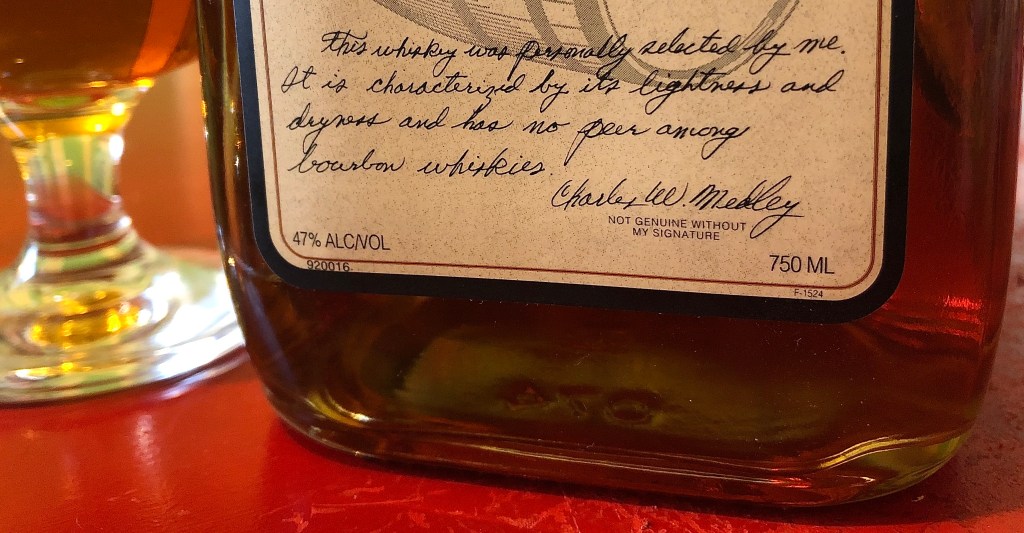 This whiskey was personally selected by me.
It is characterized by its lightness and
dryness and has no peer among
bourbon whiskies.
Charles W. Medley
NOT GENUINE WITHOUT
MY SIGNATURE
47% ALC/VOL
750 ML
920016
F-1524